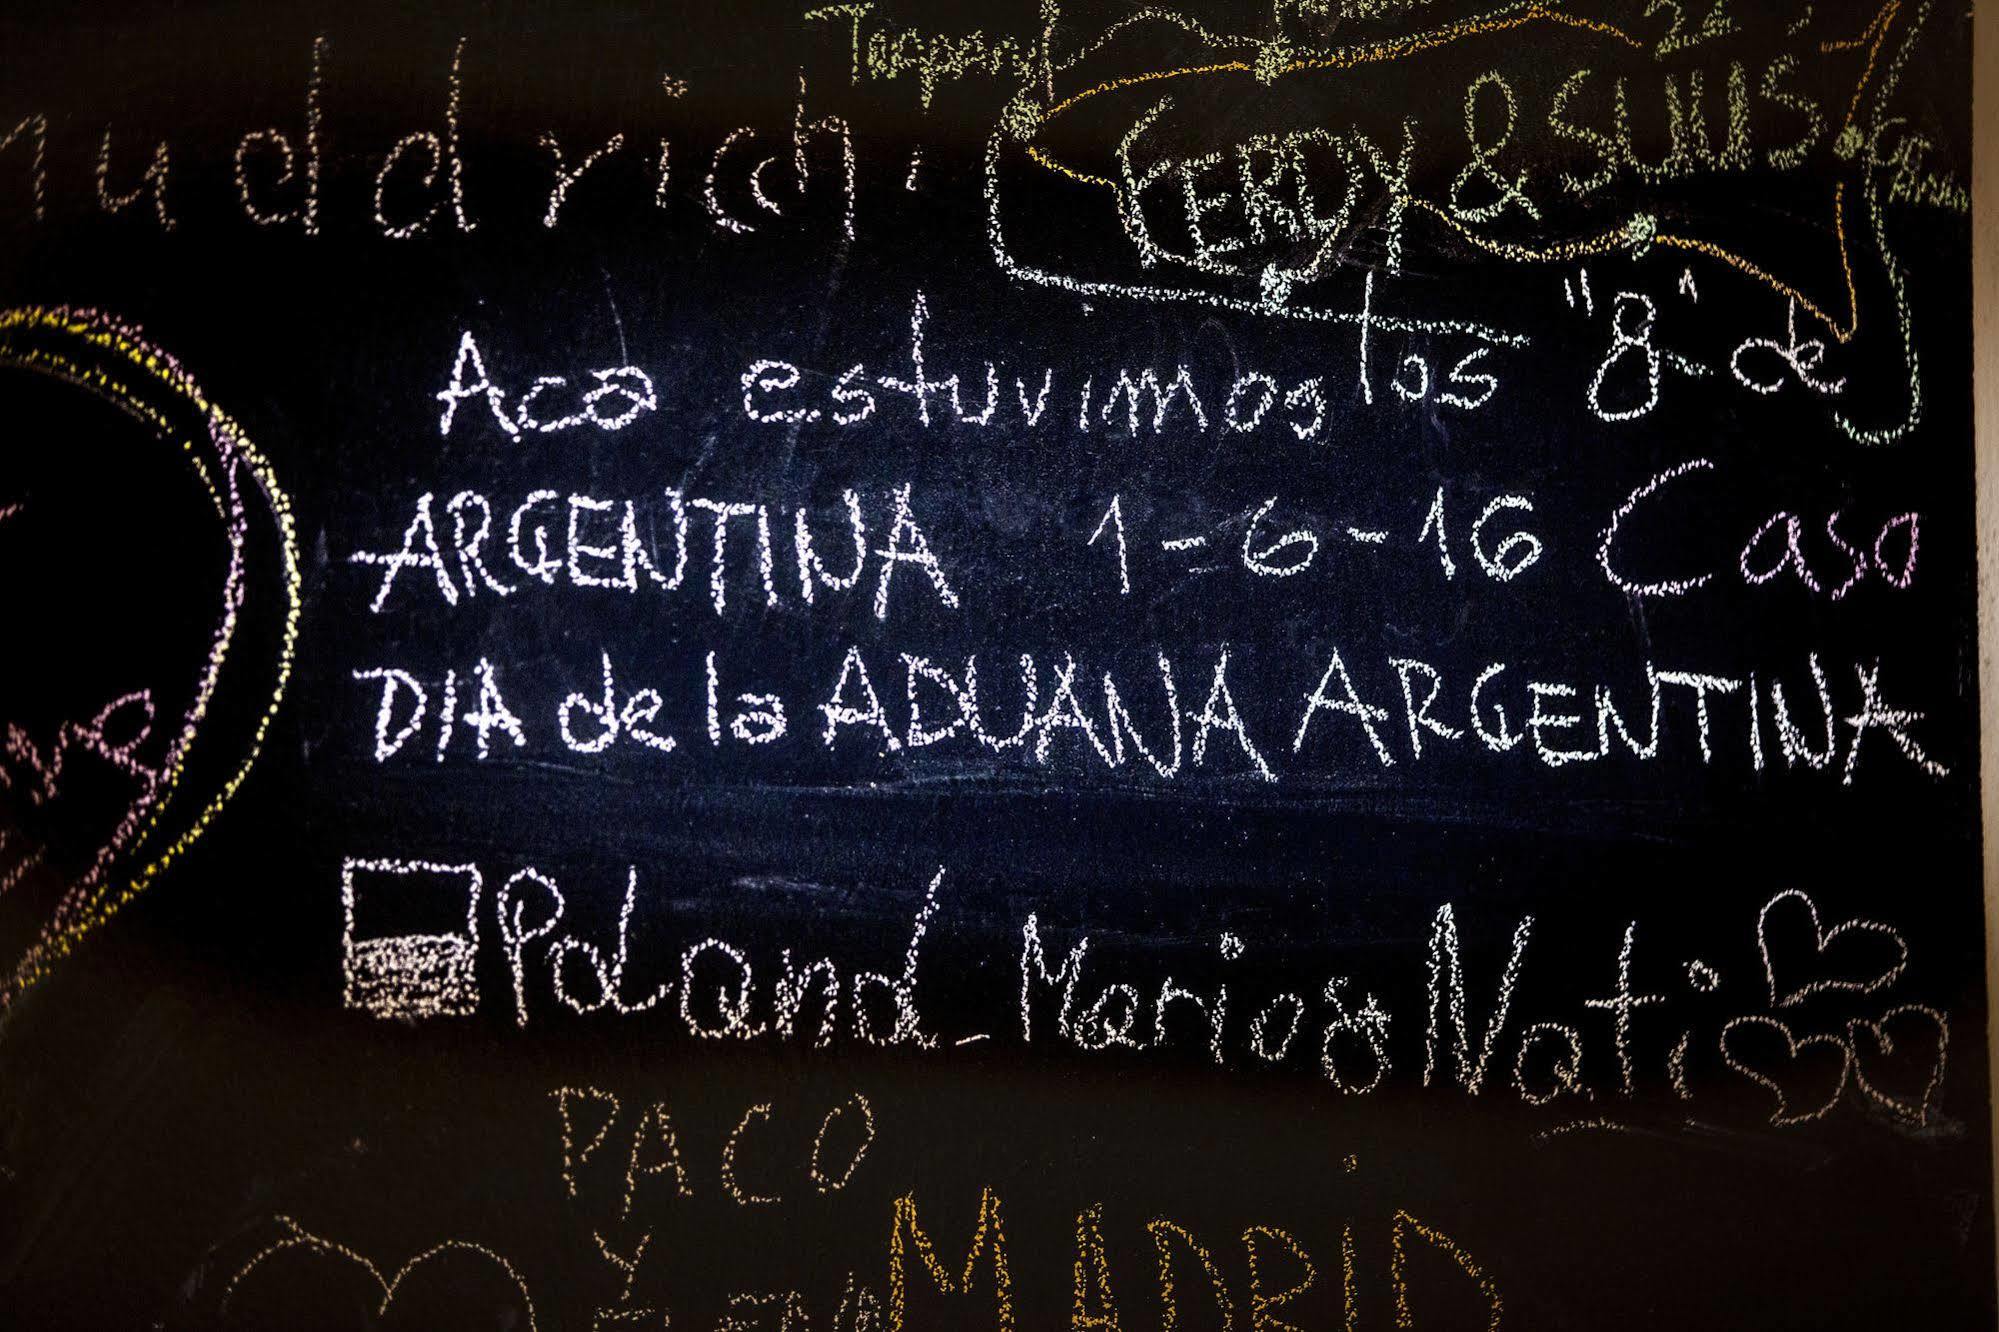 FERDY & SUUS
Aca estuvimos los "8" de
ARGENTINA 1-6-16 Casa
DIA de la ADUANA ARGENTINA
Poland_Mario & Nati
PACO
Y
MADRID